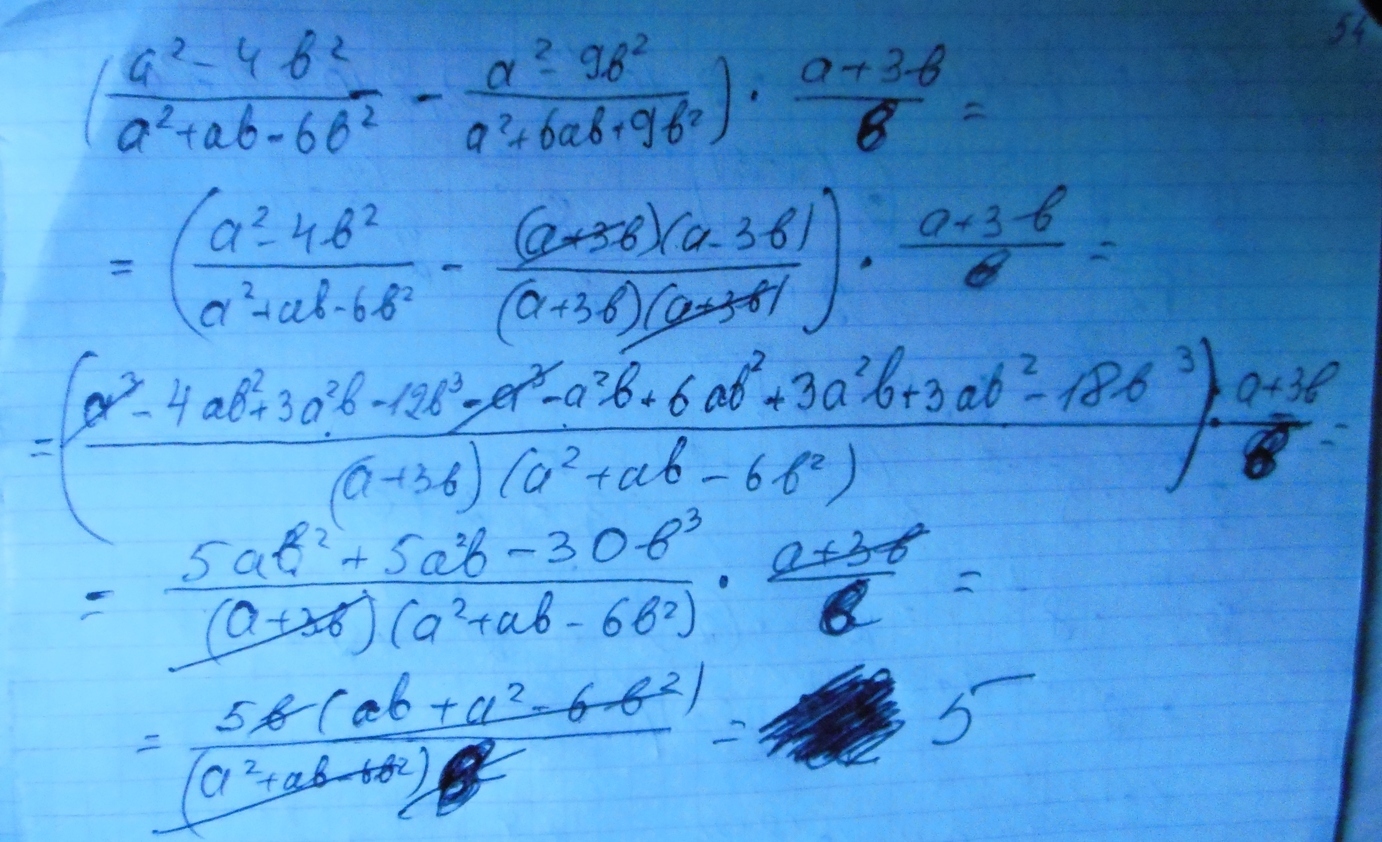 54
(\frac{a² - 4b²}{a² + ab - 6b²} - \frac{a² - 9b²}{a² + 6ab + 9b²}) · \frac{a + 3b}{b} =
= (\frac{a² - 4b²}{a² + ab - 6b²} - \frac{(a + 3b)(a - 3b)}{(a + 3b)(a + 3b)}) · \frac{a + 3b}{b} =
= (\frac{a³ - 4ab² + 3a²b - 12b³ - a³ - a²b + 6ab² + 3a²b + 3ab² - 18b³}{(a + 3b)(a² + ab - 6b²)}) · \frac{a + 3b}{b} =
= \frac{5ab² + 5a²b - 30b³}{(a + 3b)(a² + ab - 6b²)} · \frac{a + 3b}{b} =
= \frac{5b(ab + a² - 6b²)}{(a² + ab - 6b²)b} = 5